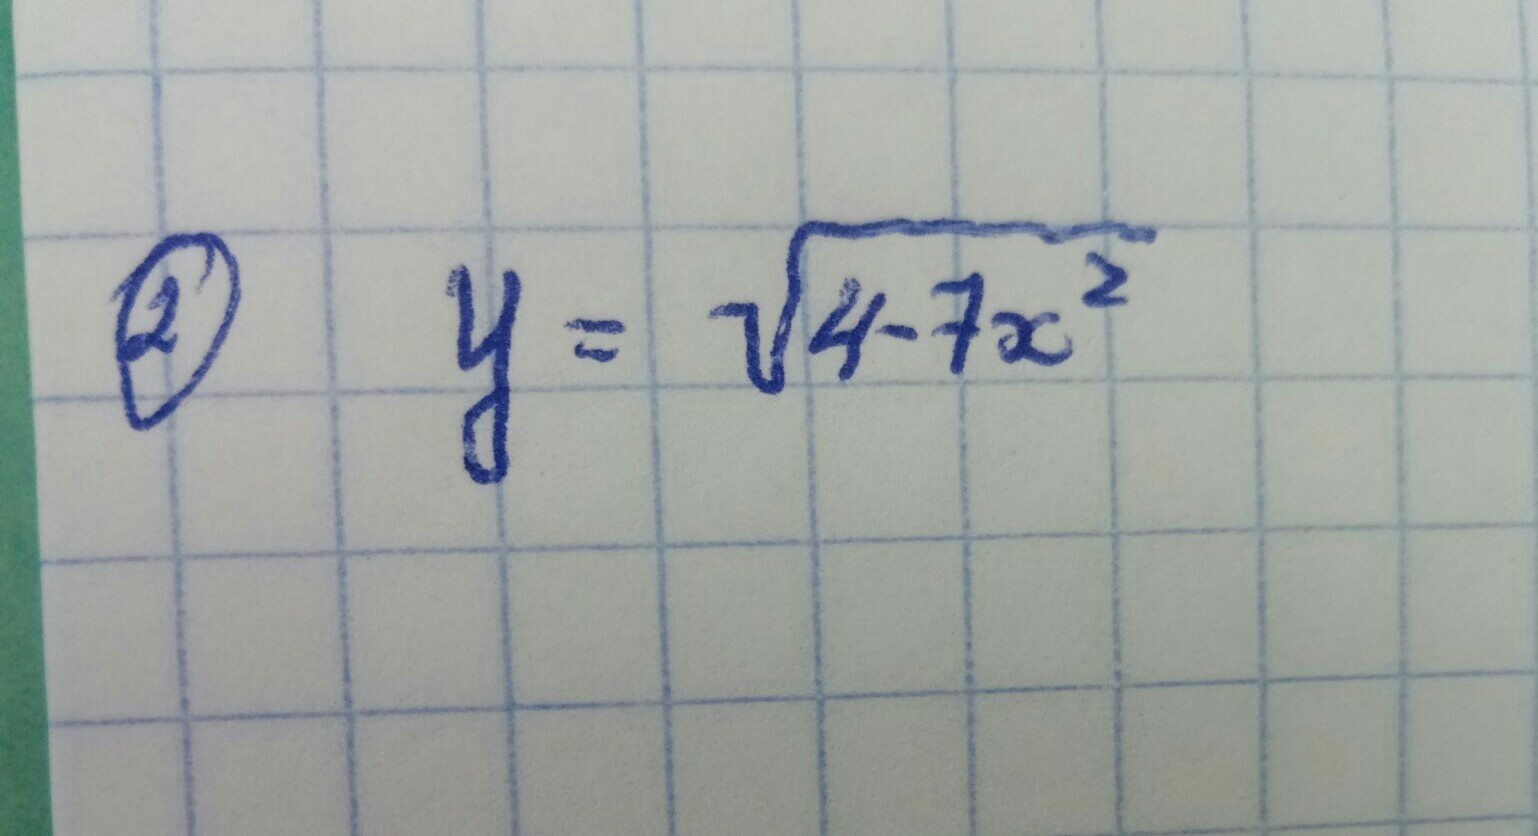 ② y = √(4-7x²)